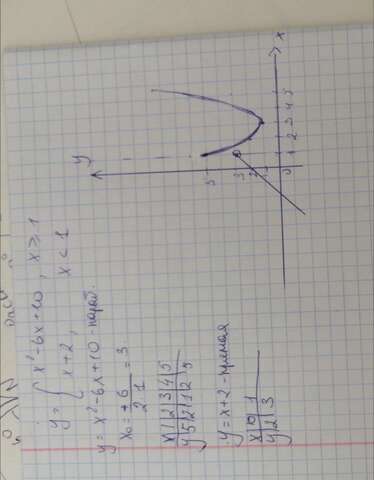 y = { x² - 6x + 10, x ≥ 1
x + 2, x < 1
y = x² - 6x + 10 - параб.
x₀ = +6/2·1 = 3
x | 1 | 2 | 3 | 4 | 5
y | 5 | 2 | 1 | 2 | 5
y = x + 2 - прямая
x | 0 | 1
y | 2 | 3
y
5
3
2
0 1 2 3 4 5
x